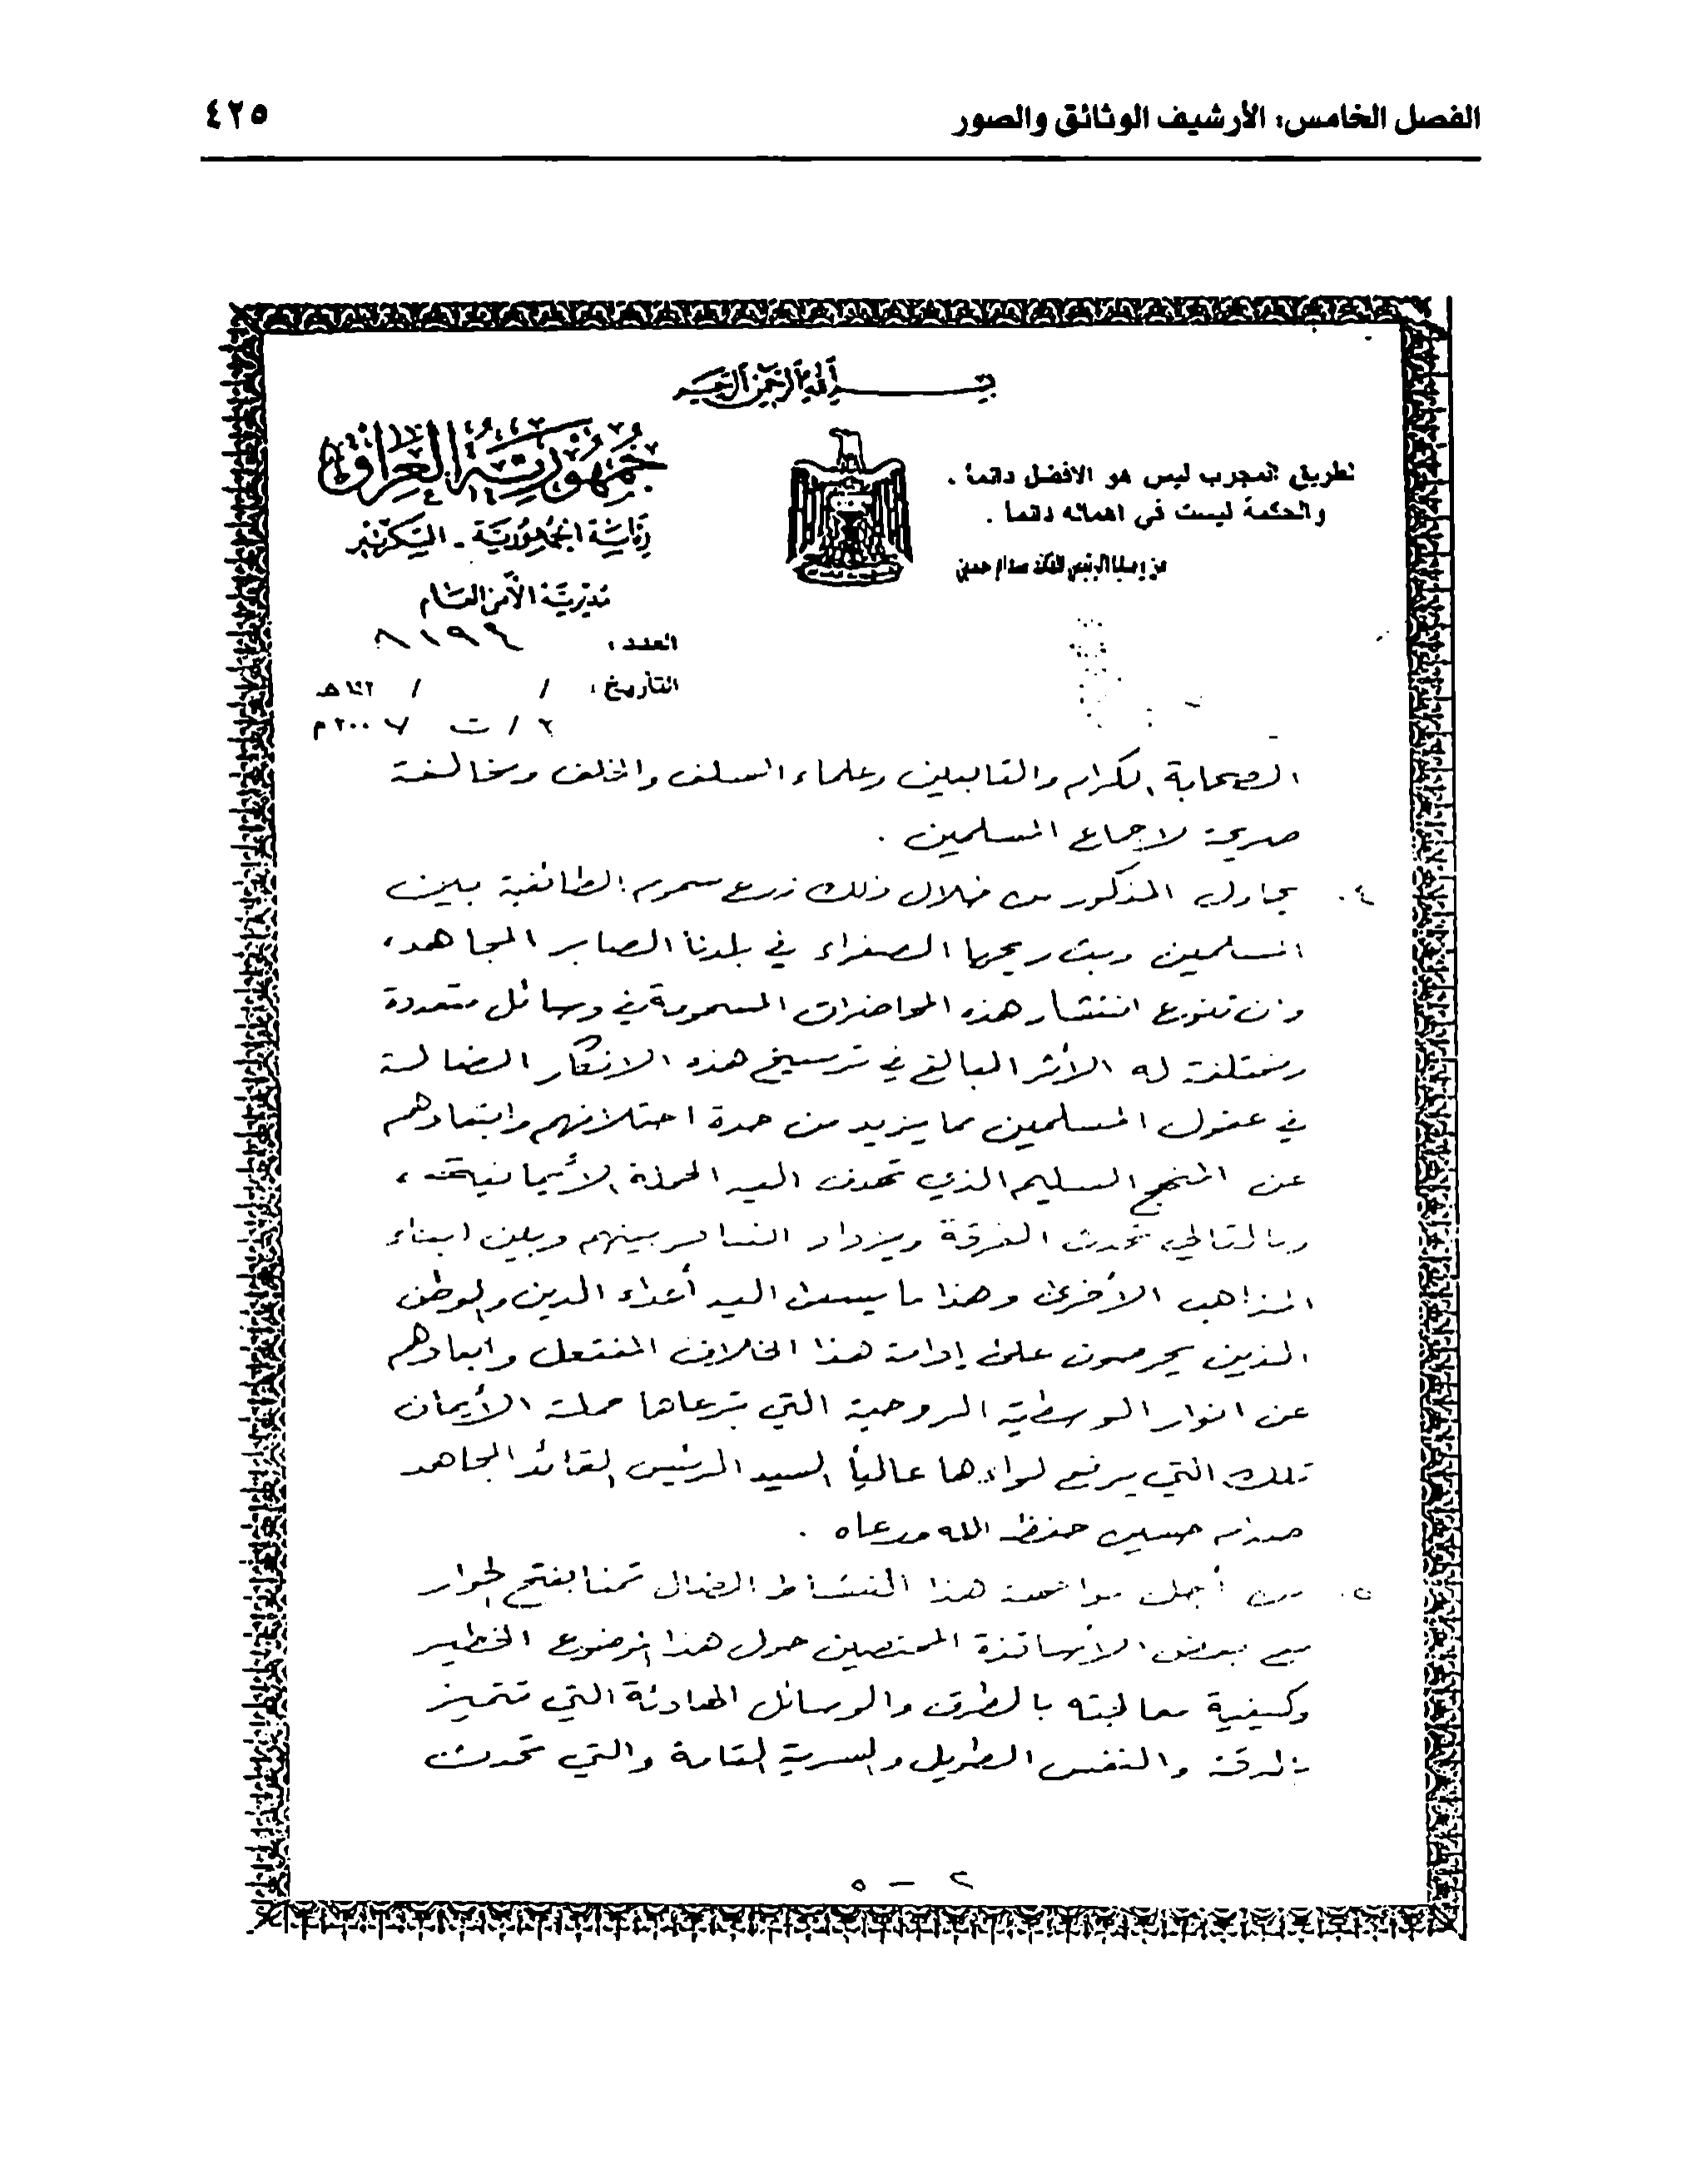 الفصل الخامس: الأرشيف الوثائق والصور
٤٢٥
بسم الله الرحمن الرحيم
جمهورية العراق
رئاسة الجمهورية - السكرتير
مديرية الأمن العام
الطريق المجرب ليس هو الافضل دائماً .
والحكمة ليست في اهماله دائماً .
من وصايا الرئيس القائد صدام حسين
العدد :
التأريخ : / /
الصحابة الكرام والتابعين وعلماء السلف والخلف ومخالفة
صريحة لاجماع المسلمين .
٤. يحاول المذكور من خلال ذلك زرع سموم الطائفية بين
المسلمين وبث ريحها الصفراء في بلدنا الصابر المجاهد،
وان تنوع انتشار هذه المحاضرات المسمومة في وسائل متعددة
ومختلفة له الأثر البالغ في ترسيخ هذه الافكار الضالة
في عقول المسلمين مما يزيد من حدة اختلافهم وابتعادهم
عن المنهج السليم الذي تهدف اليه الحملة الأيمانية ،
وبالتالي تحدث الفرقة ويزداد التنافر بينهم وبين ابناء
المذاهب الأخرى وهذا ما يسعى اليه أعداء الدين والوطن
الذين يحرصون على إدامة هذا الخلاف المفتعل وابعادهم
عن انوار الوسطية الروحية التي ترعاها حملة الأيمان
تلك التي يرفع لواءها عالياً السيد الرئيس القائد المجاهد
صدام حسين حفظه الله ورعاه .
٥. من أجل مواجهة هذا النشاط الضال قمنا بفتح حوار
مع بعض الأساتذة المختصين حول هذا الموضوع الخطير
وكيفية معالجته بالطرق والوسائل الهادئة التي تتميز
بالدقة والنفس الطويل والسرية التامة والتي تحدث
٢ - ٥